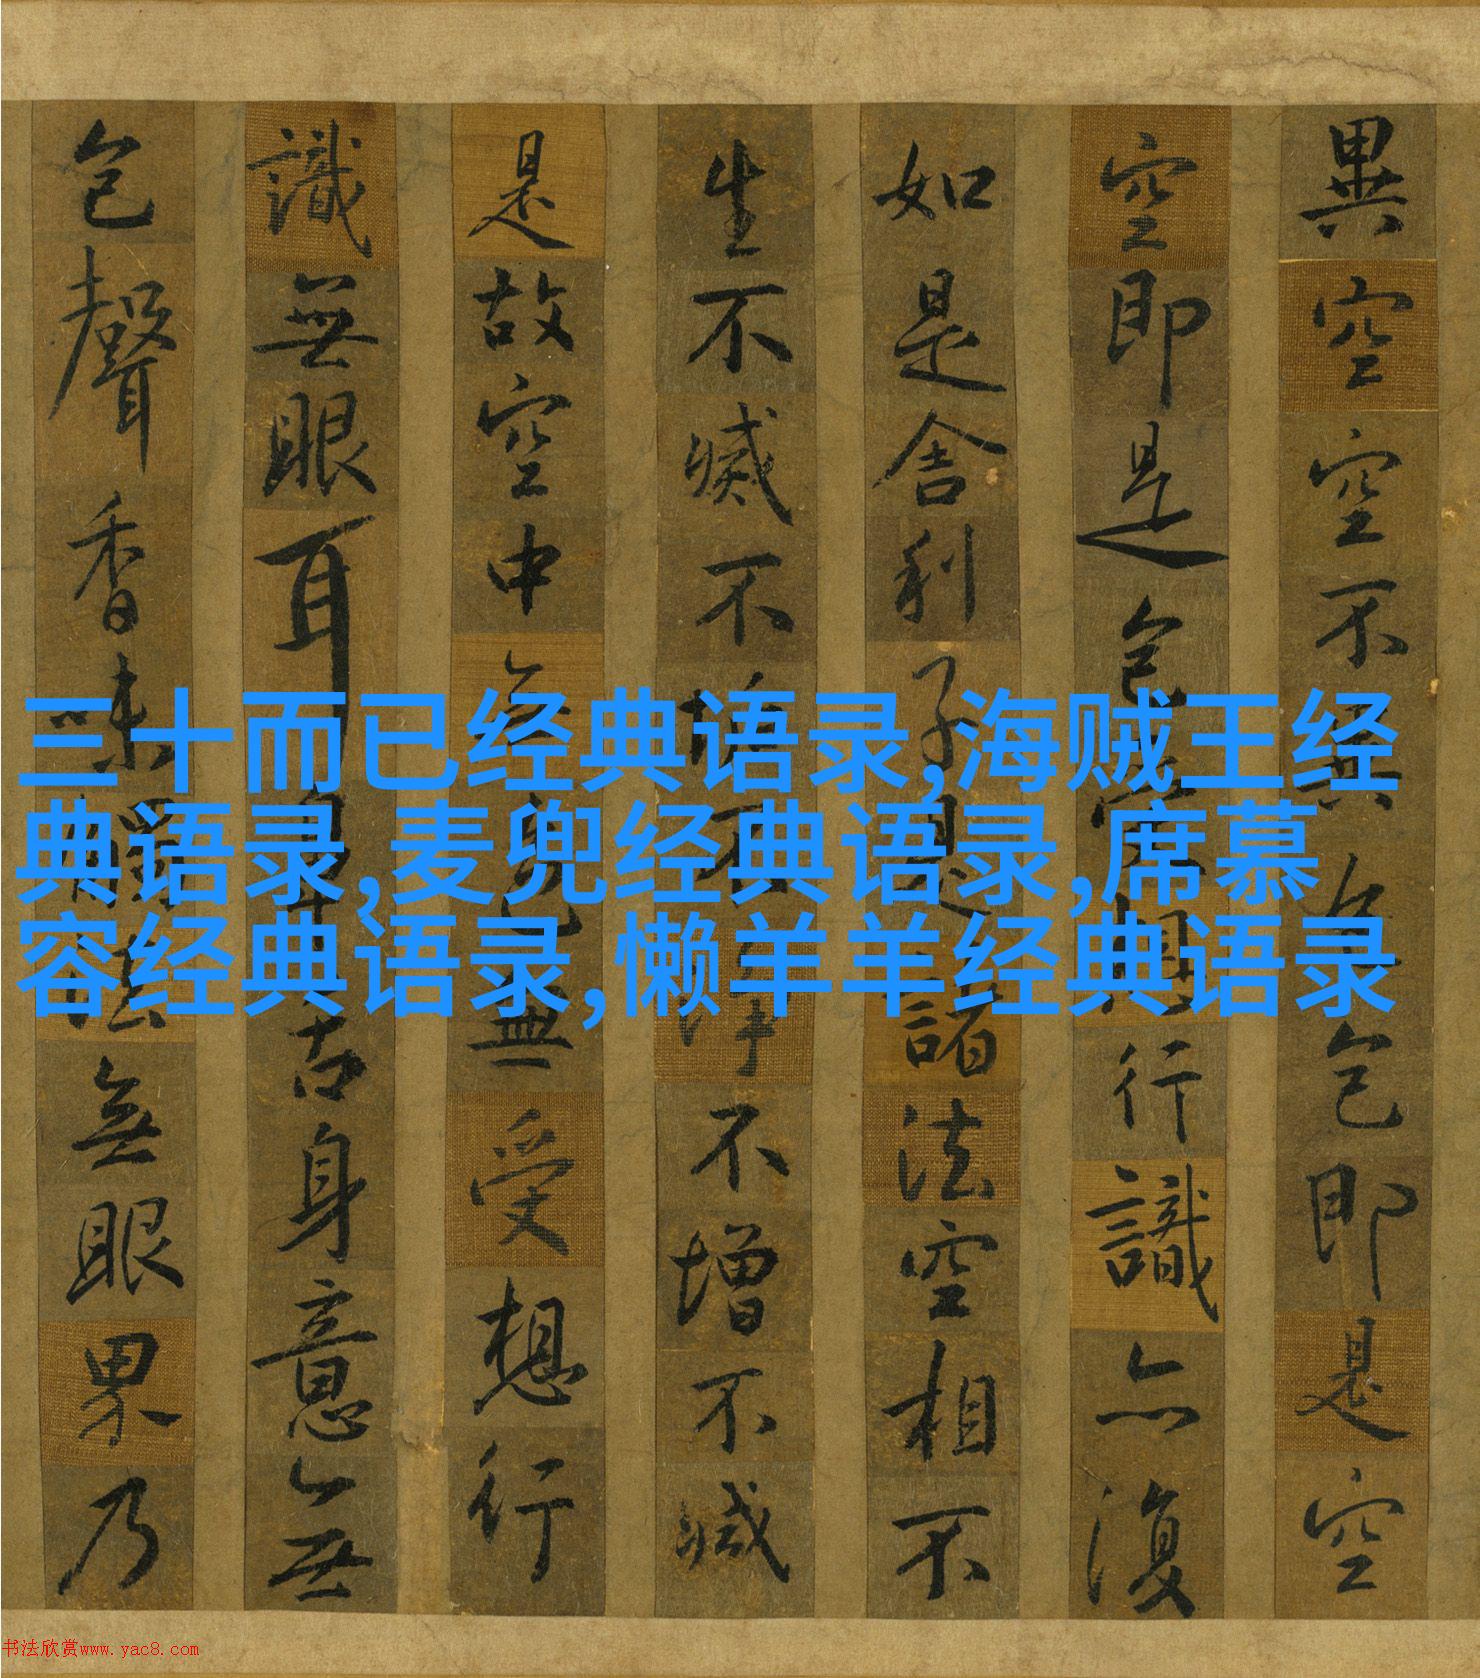 異空空不異色色即是空
空即是色受想行識亦復
如是舍利子是諸法空相不
生不滅不垢不淨不增不減
是故空中無色無受想行
識無眼耳鼻舌身意無
色聲香味觸法無眼界乃
三十而已经典语录,海贼王经
典语录,麦兜经典语录,席慕
容经典语录,懒羊羊经典语录
书法欣赏www.yac8.com